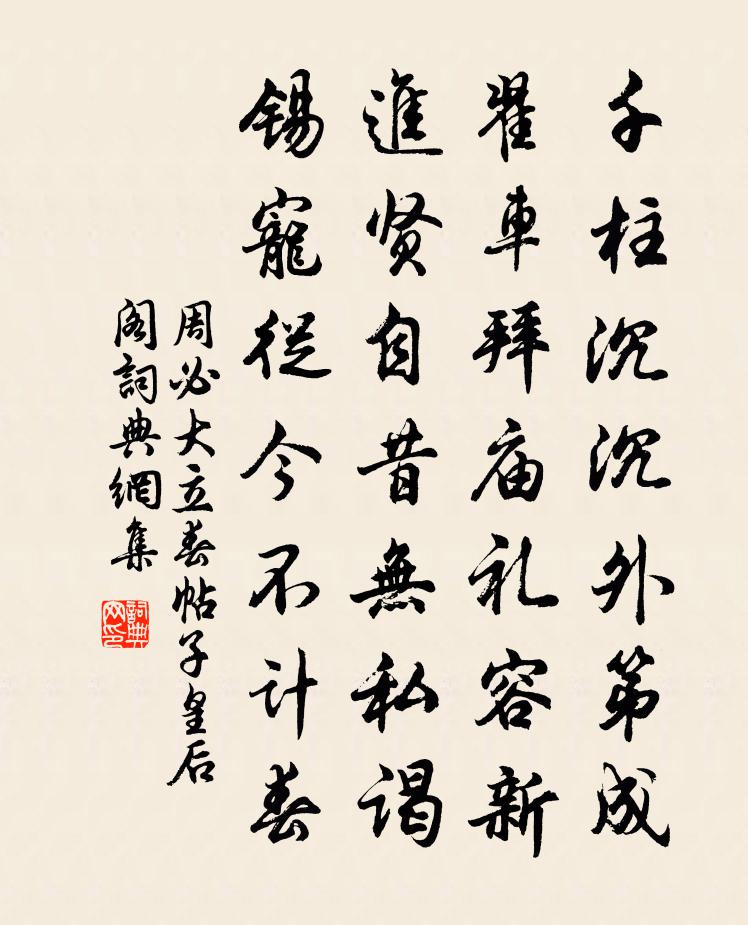 千柱沉沉外第成
翟車拜庙礼容新
進贤自昔無私謁
錫寵從今不计春
周必大立春帖子皇后
阁詞典網集
詞典网印